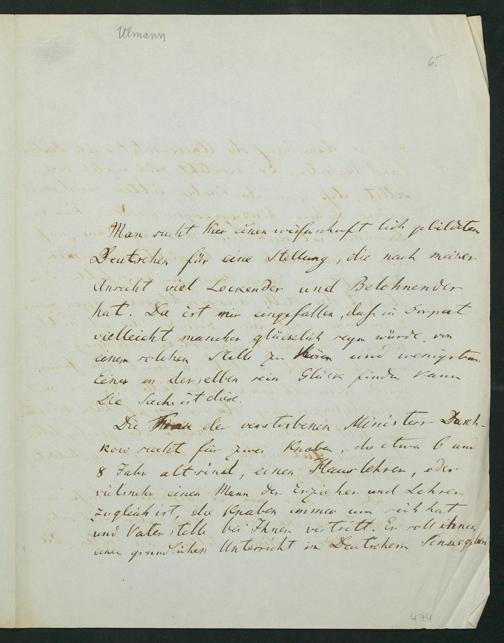 Ulmann
65
Man sucht hier einen wissenschaftlich gebildeten
Deutschen für eine Stellung, die nach meiner
Ansicht viel Lockender und Belohnender
hat. Da ist mir eingefallen, daß in Dorpat
vielleicht mancher glücklich seyn würde, von
einer solchen Stelle zu hören und wenigstens
Einer in derselben sein Glück finden kann
Die Sache ist diese.
Die Frau des verstorbenen Ministers Dasch-
kow sucht für zwei Knaben, die etwa 6 und
8 Jahr alt sind, einen Hauslehrer, oder
vielmehr einen Mann der Erzieher und Lehrer
zugleich ist, die Knaben immer um sich hat
und Vaterstelle bei Ihnen vertritt. Er soll ihnen
einen gründlichen Unterricht in Deutschem Sinne geben
474